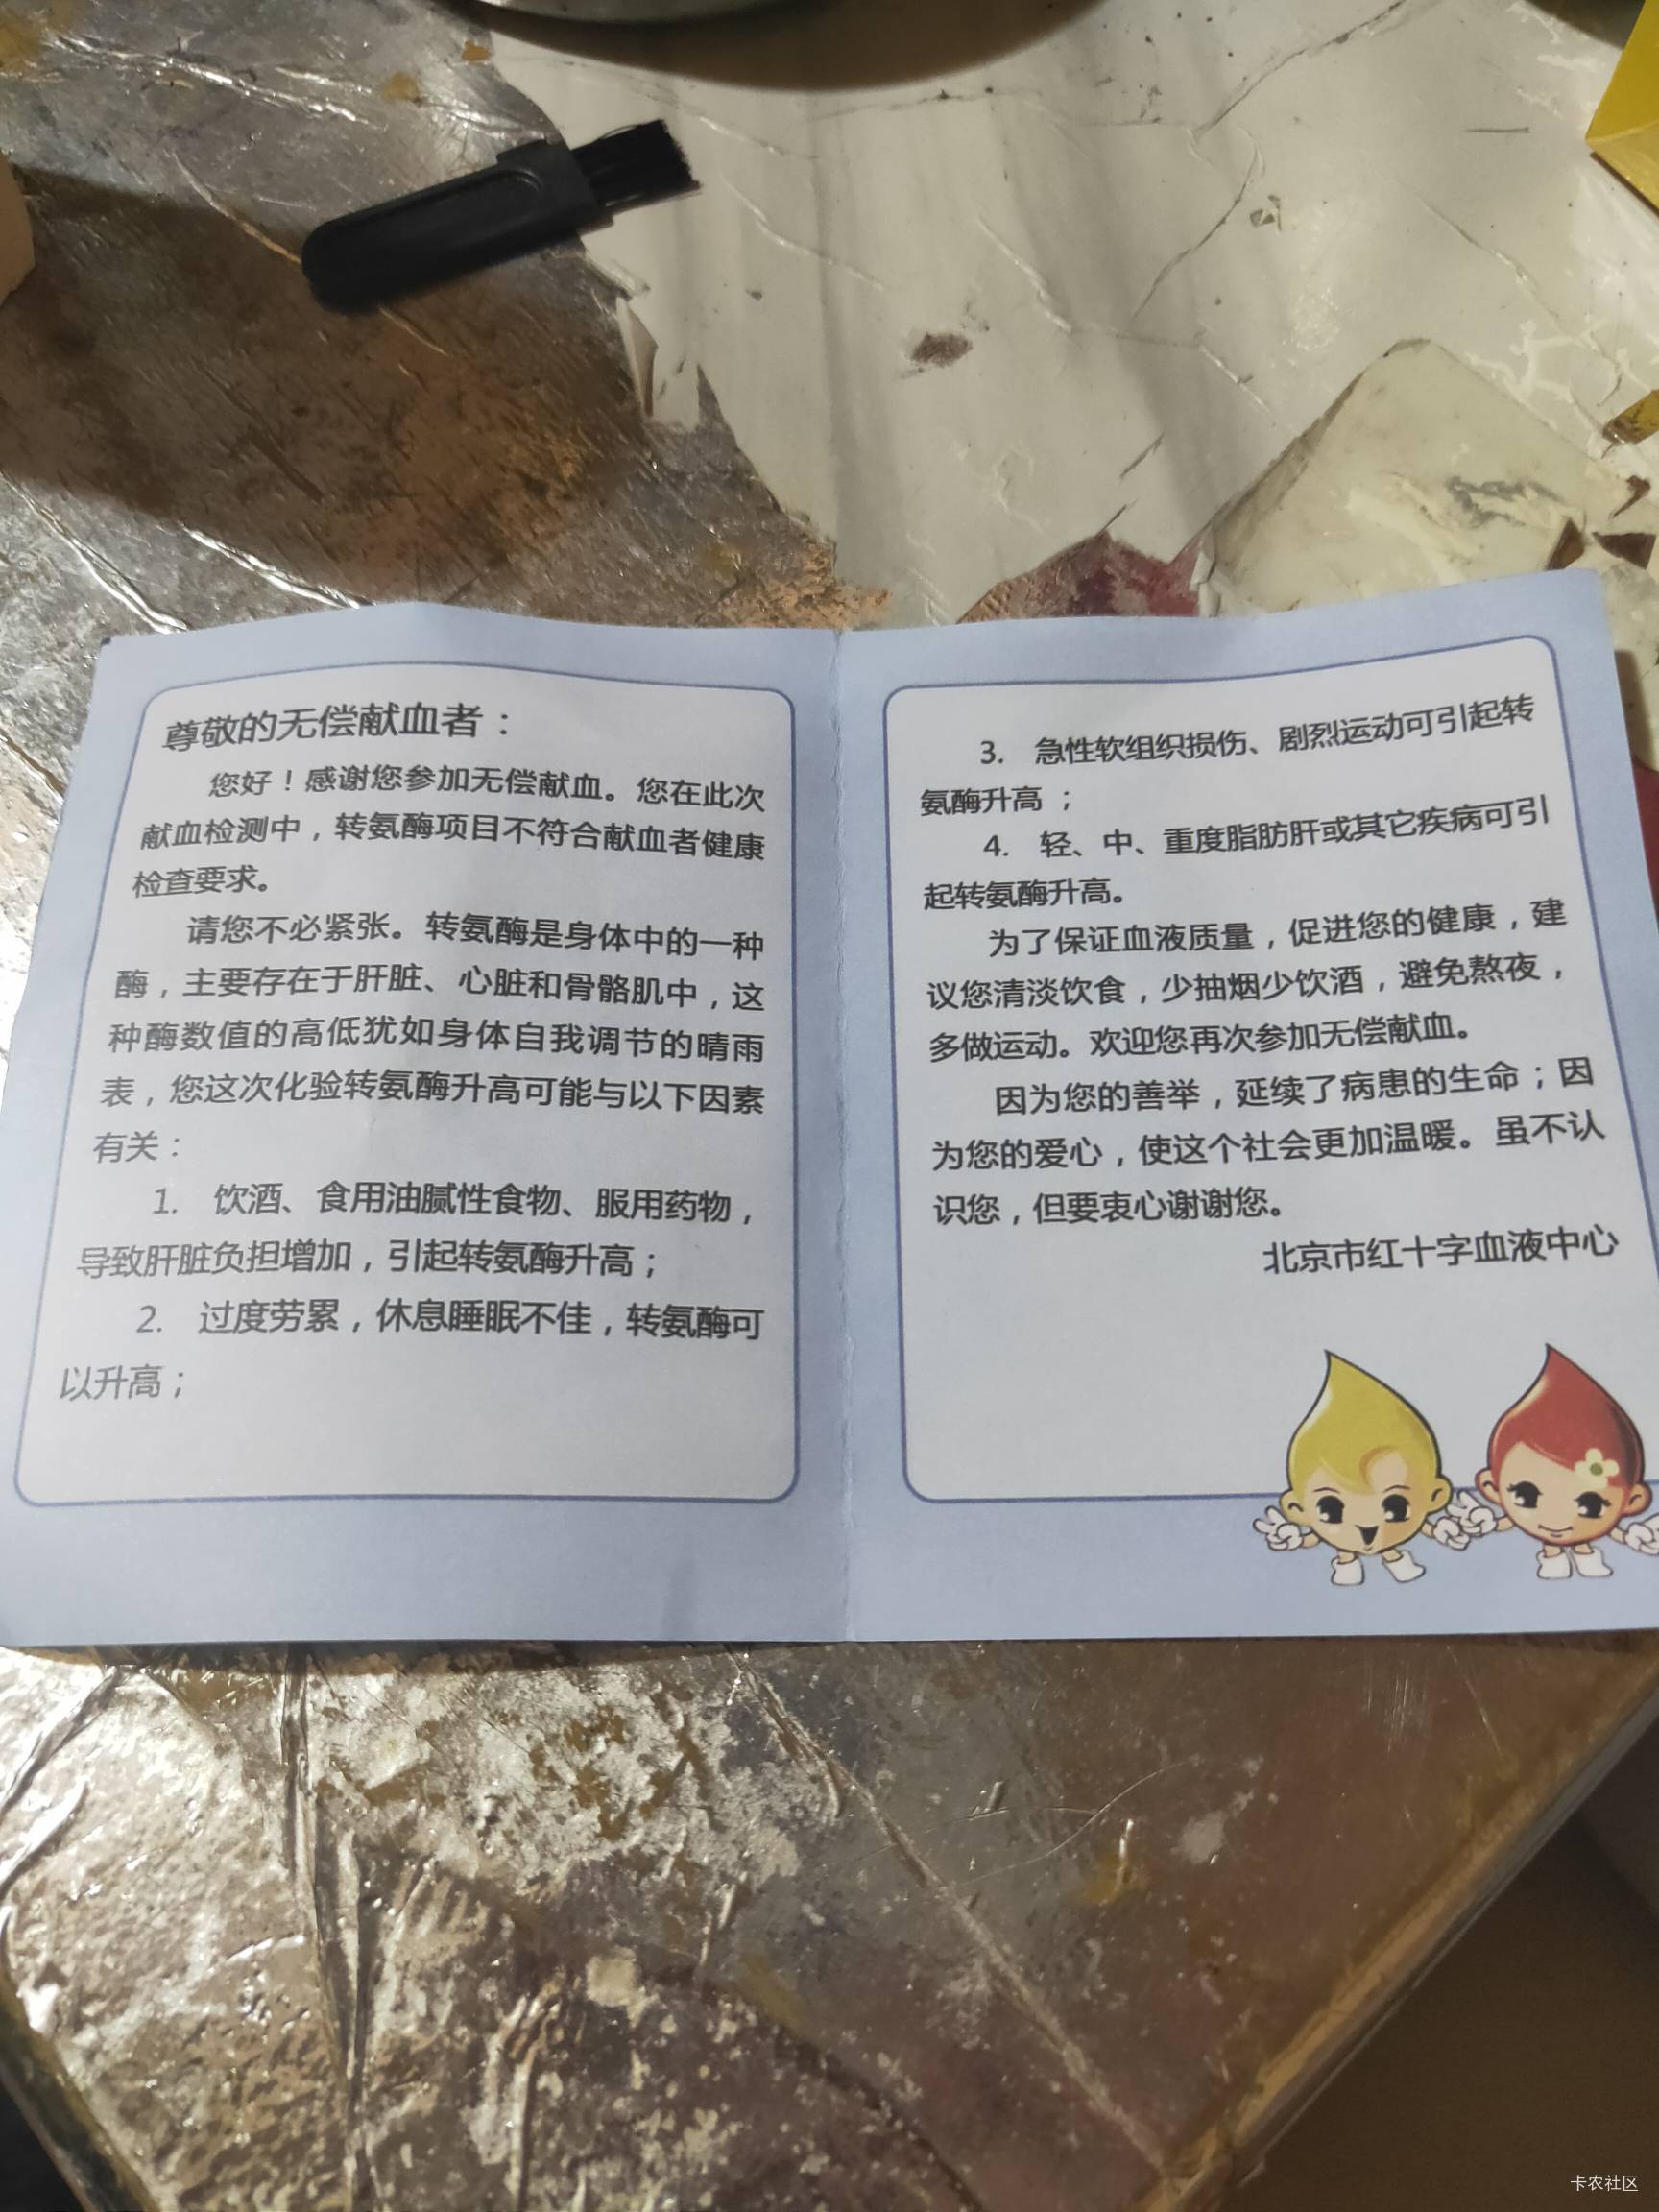 尊敬的无偿献血者：
您好！感谢您参加无偿献血。您在此次
献血检测中，转氨酶项目不符合献血者健康
检查要求。
请您不必紧张。转氨酶是身体中的一种
酶，主要存在于肝脏、心脏和骨骼肌中，这
种酶数值的高低犹如身体自我调节的晴雨
表，您这次化验转氨酶升高可能与以下因素
有关：
1. 饮酒、食用油腻性食物、服用药物，
导致肝脏负担增加，引起转氨酶升高；
2. 过度劳累，休息睡眠不佳，转氨酶可
以升高；
3. 急性软组织损伤、剧烈运动可引起转
氨酶升高；
4. 轻、中、重度脂肪肝或其它疾病可引
起转氨酶升高。
为了保证血液质量，促进您的健康，建
议您清淡饮食，少抽烟少饮酒，避免熬夜，
多做运动。欢迎您再次参加无偿献血。
因为您的善举，延续了病患的生命；因
为您的爱心，使这个社会更加温暖。虽不认
识您，但要衷心谢谢您。
北京市红十字血液中心
卡农社区